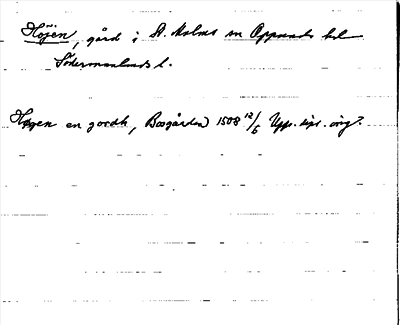 Höjen, gård i St. Malms sn Oppunda hd
Södermanlands l.
Høgen en gordh, Bosgården 1508 12/6 Upps. dipl. orig.